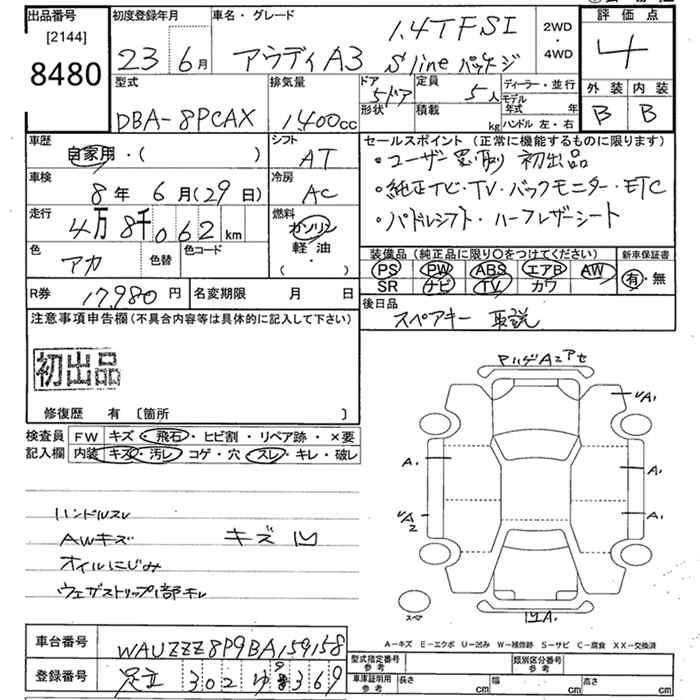 出品番号
[2144]
8480
初度登録年月
23 6月
車名・グレード
1.4TFSI
アウディA3 Sline パッケージ
2WD
・
4WD
評価点
4
外装 内装
B B
型式
DBA-8PCAX
排気量
1,400cc
ドア 5ドア
形状
定員 5人
積載 kg
ディーラー・並行
モデル年式 年
ハンドル 左・右
車歴
自家用・( )
シフト
AT
車検
8年 6月(29日)
冷房
AC
走行
4万8千062km
燃料
ガソリン
軽油
( ・ )
色
アカ
色替
色コード
セールスポイント(正常に機能するものに限ります)
・ユーザー買取 初出品
・純正ナビ・TV・バックモニター・ETC
・パドルシフト・ハーフレザーシート
装備品(純正品に限り○をつけてください)
PS PW ABS エアB AW
SR ナビ TV カワ
新車保証書
有・無
R券 17,980円
名変期限 月 日
後日品
スペアキー 取説
注意事項申告欄(不具合内容等は具体的に記入して下さい)
初出品
修復歴 有 〔箇所 〕
検査員
記入欄
FW キズ・飛石・ヒビ割・リペア跡・×要
内装 キズ・汚レ・コゲ・穴・スレ・キレ・破レ
ハンドルスレ
AWキズ キズ凹
オイルにじみ
ウェザストリップ1部キレ
A1
A1
A1
A1
スペア
A-キズ E-エクボ U-凹み W-補修跡 S-サビ C-腐食 XX-交換済
車台番号
WAUZZZ8P9BA159158
登録番号
足立 302 ゆ 369
型式指定番号
参考
類別区分番号
参考
車庫証明用
参考
長さ cm
幅 cm
高さ cm